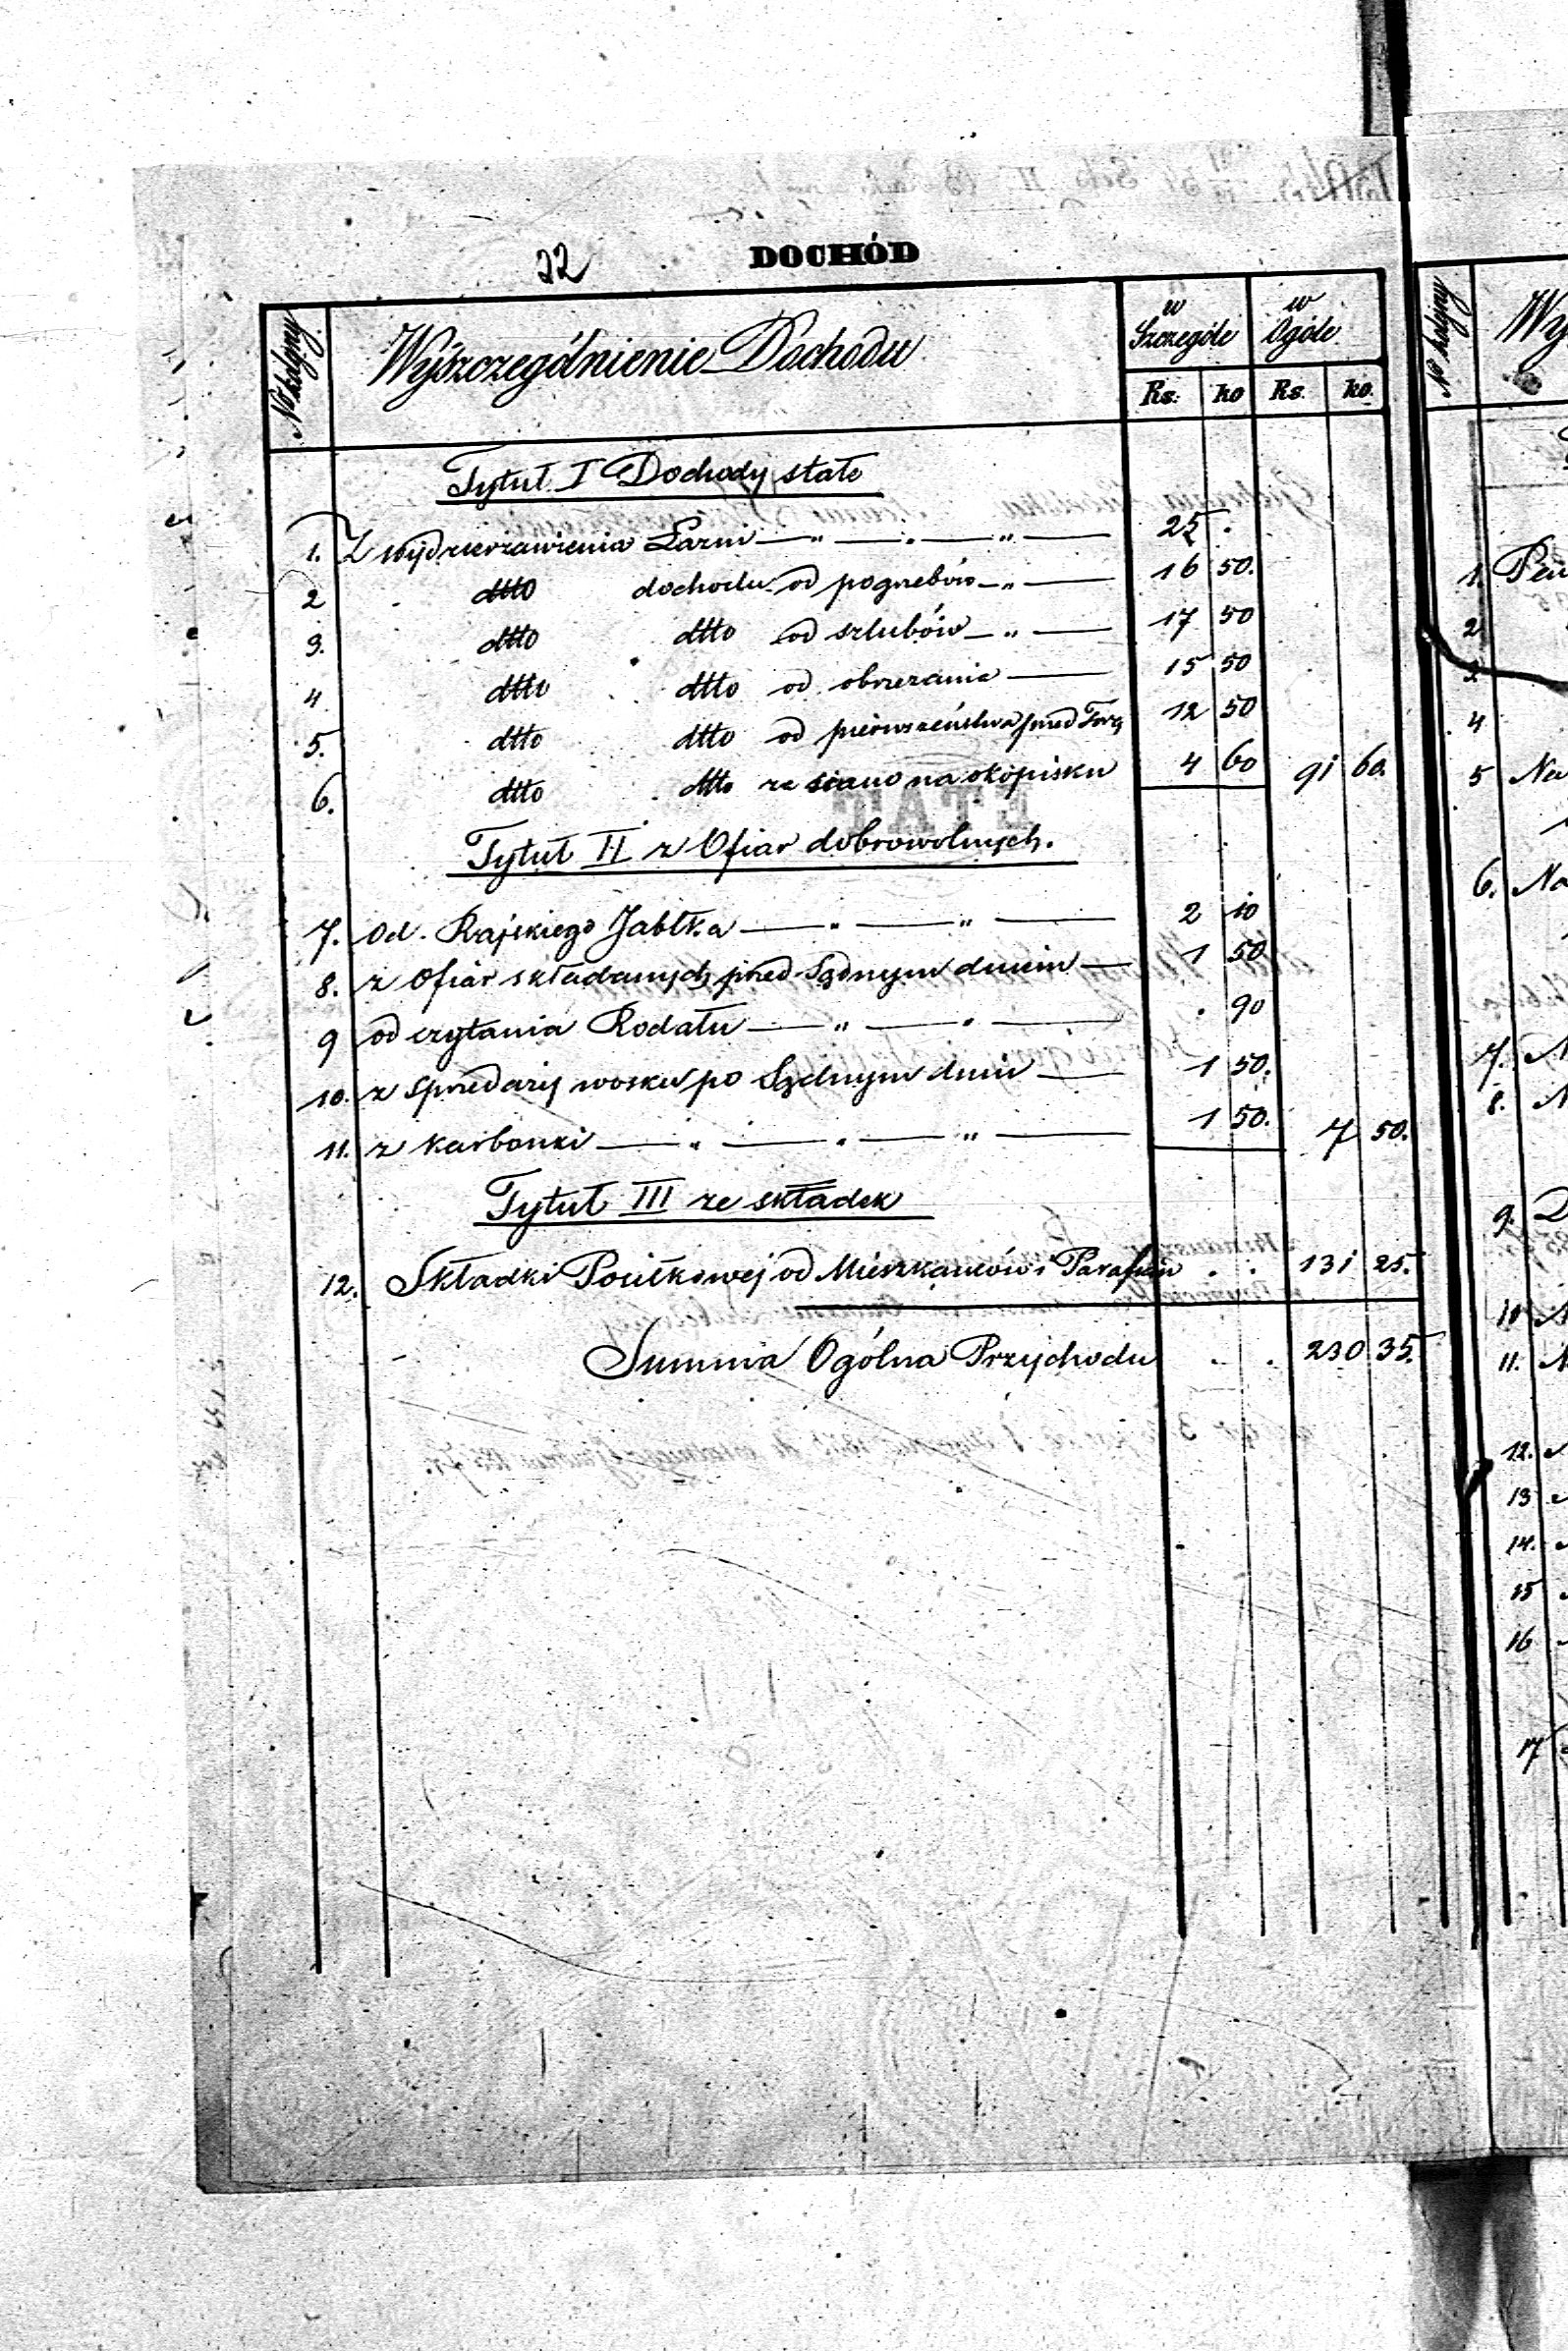 22
DOCHÓD
No kolejny
Wyszczególnienie Dochodu
w Szczególe
w Ogóle
Rs. ko Rs. ko.
Tytuł I Dochody stałe
1. Z wydzierżawienia Łazni — „ — „ — „ — 25 .
2 dtto dochodu od pogrzebów — „ — 16 50.
3. dtto dtto od szlubów — „ — 17 50
4 dtto dtto od obrzezania — 15 50
5. dtto dtto od pierwszeństwa przed Torą 12 50
6. dtto dtto ze siano na okopisku 4 60 91 60.
Tytuł II z Ofiar dobrowolnych.
7. od Rajskiego Jabłka — „ — „ — 2 10
8. z Ofiar składanych przed Sądnym dniem — 1 50
9 od czytania Rodału — „ — „ — . 90
10. z sprzedaży wosku po Sądnym dniu — 1 50.
11. z karbonki — „ — „ — „ — 1 50. 7 50.
Tytuł III ze składek
12. Składki Posiłkowej od Mieszkańców i Parafian . . 131 25.
Summa Ogólna Przychodu . . 230 35.
No kolejny
1.
2
3
4
5 Na
6. Na
7.
8.
9.
10
11.
12.
13
14.
15
16
17